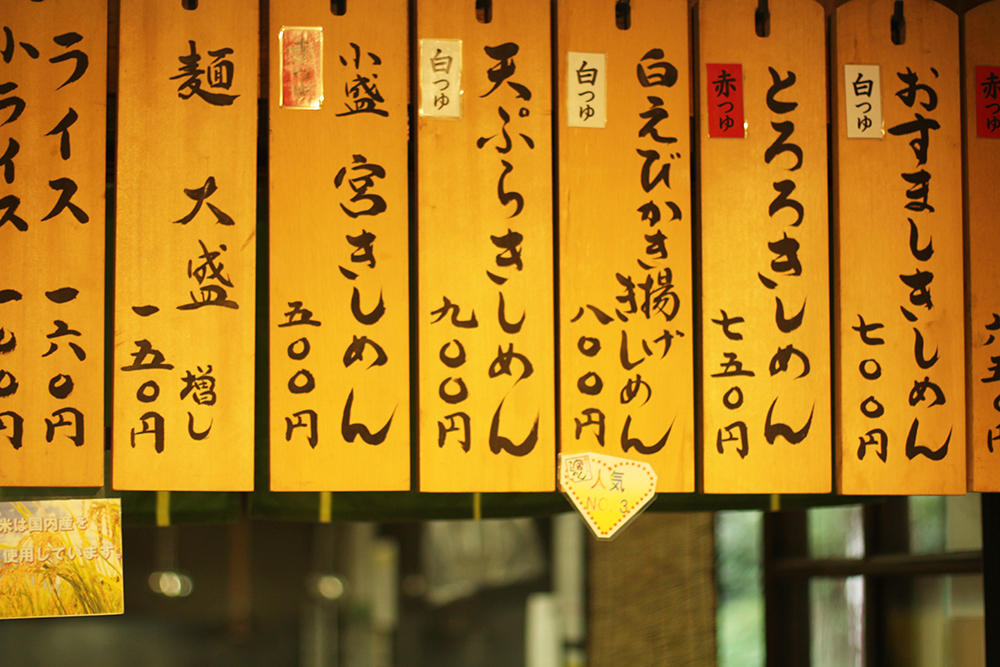 赤つゆ
六五〇円
おすましきしめん
白つゆ
七〇〇円
とろろきしめん
赤つゆ
七五〇円
白えびかき揚げきしめん
白つゆ
八〇〇円
人気
NO.3
天ぷらきしめん
白つゆ
九〇〇円
小盛 宮きしめん
五〇〇円
麺 大盛 増し
一五〇円
ライス 一六〇円
小ライス
米は国内産を
使用しています。